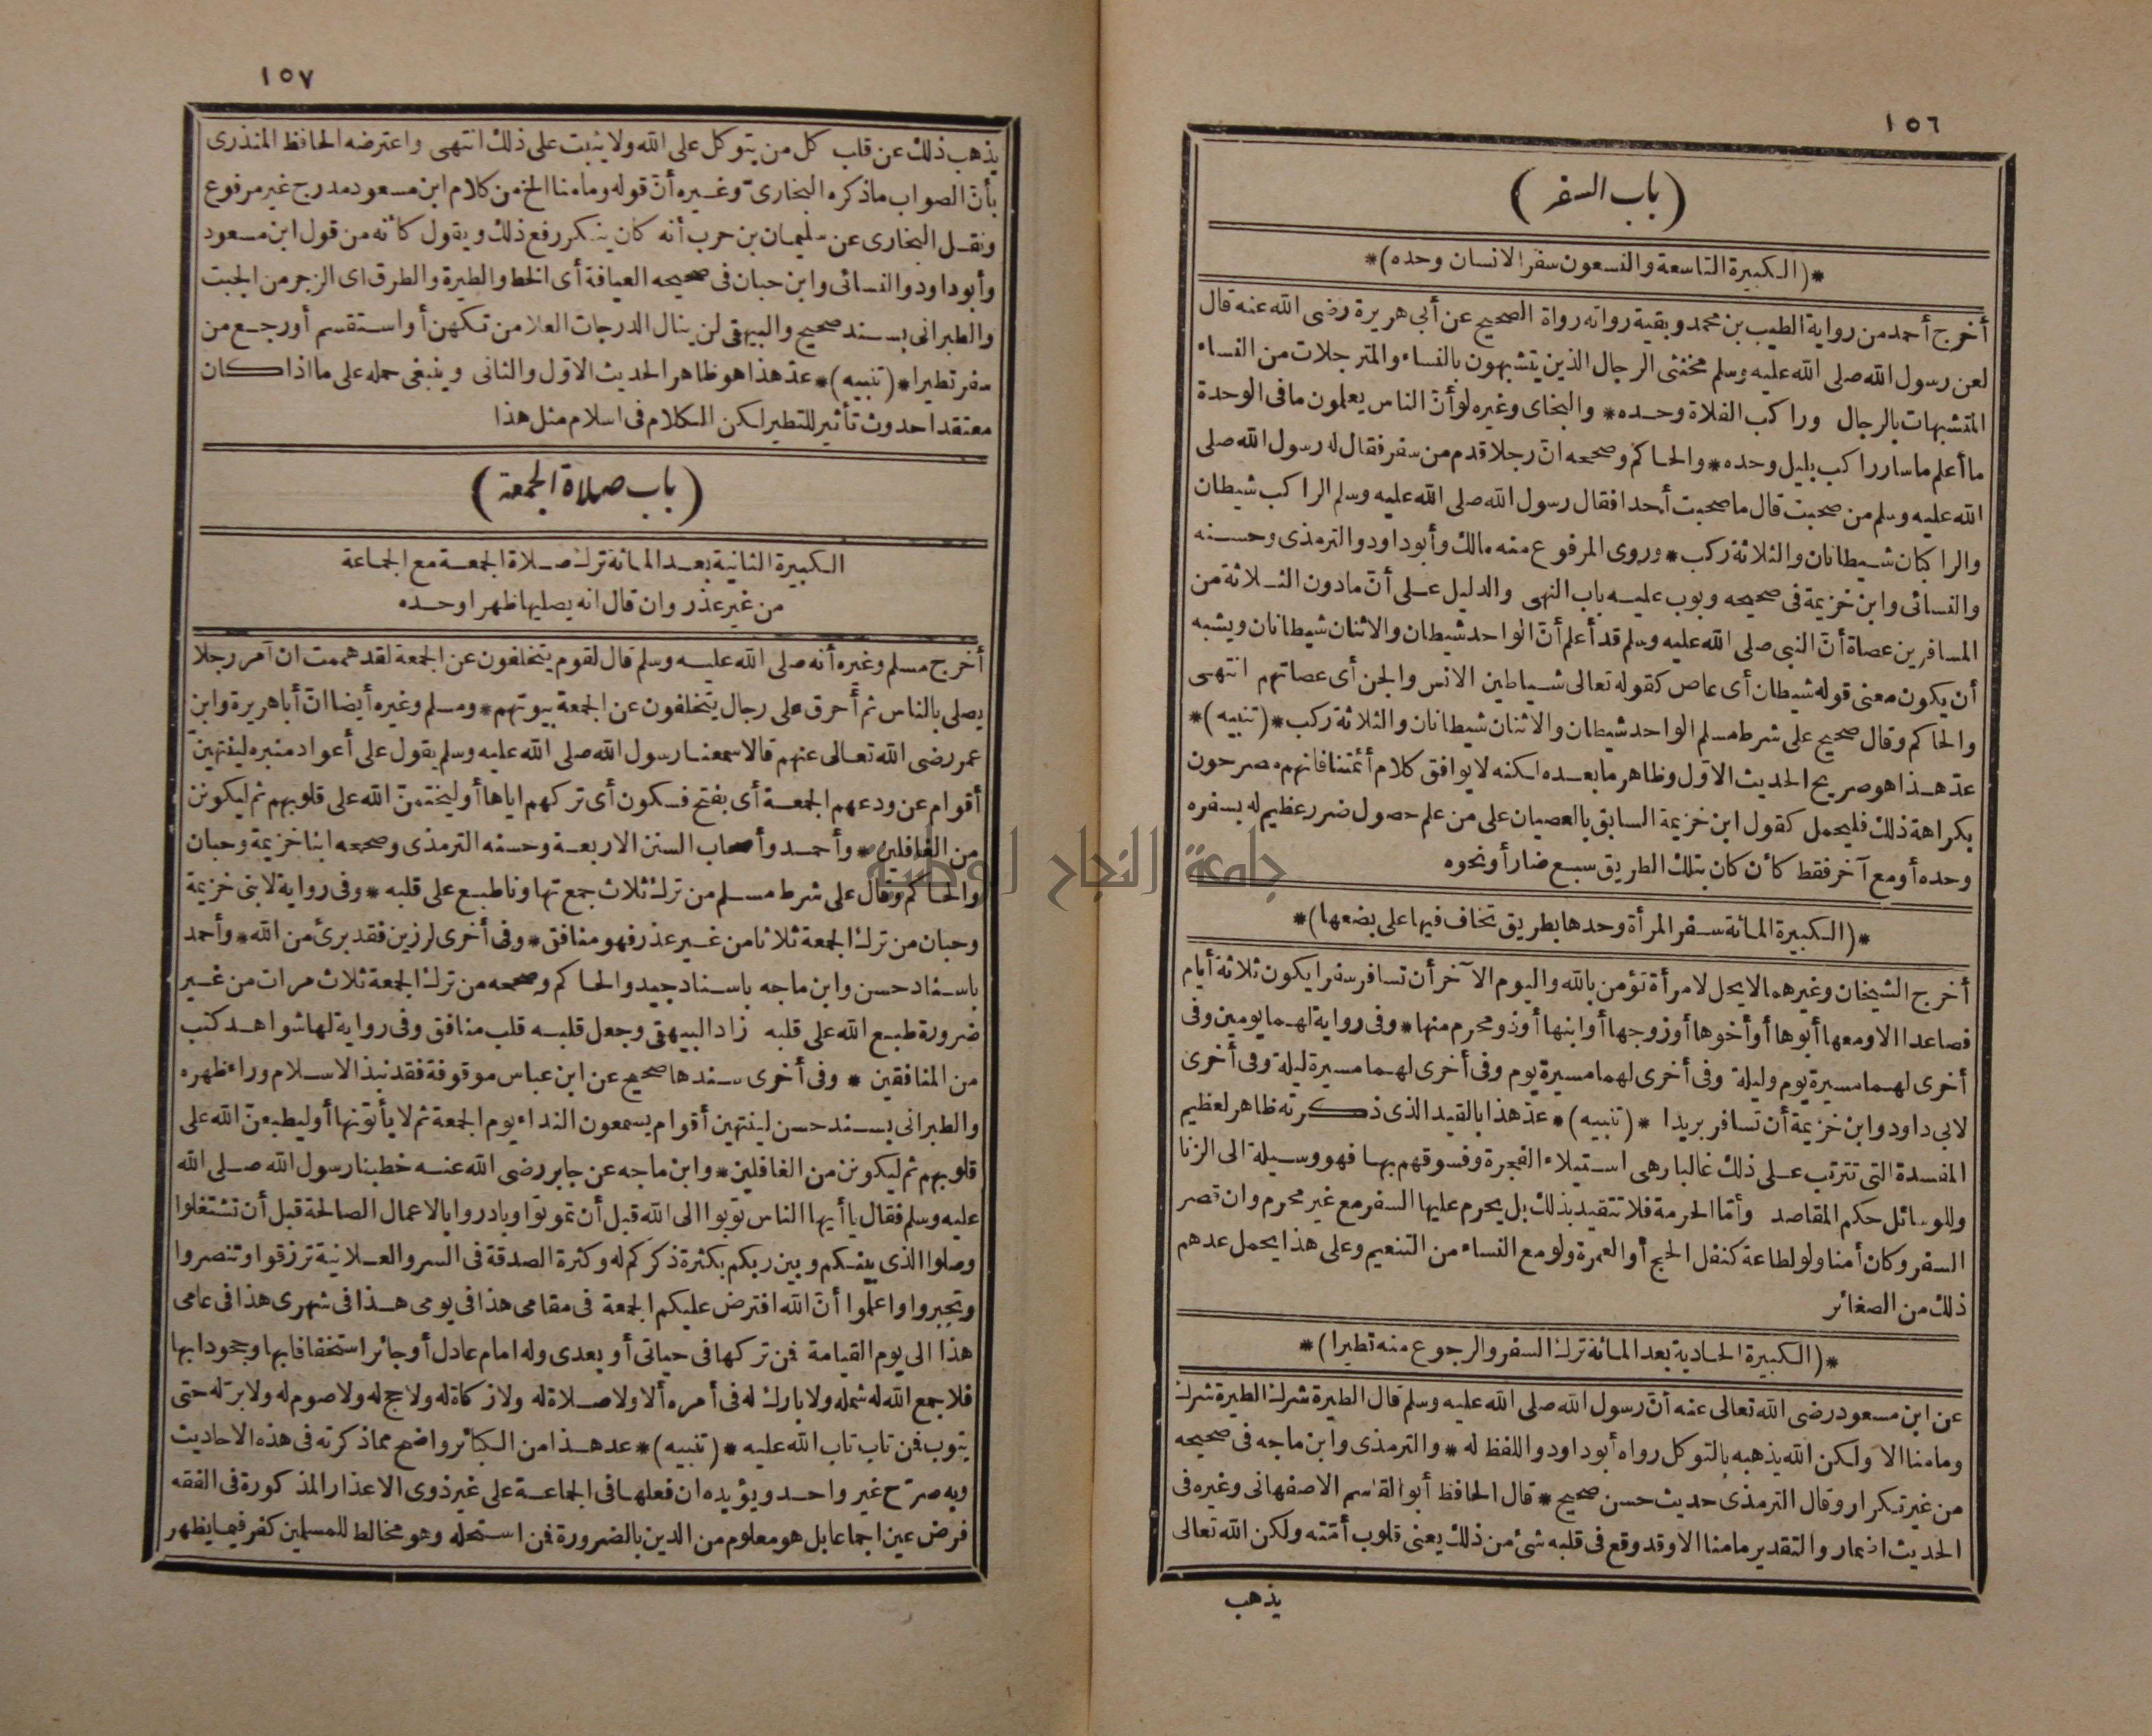 ١٥٦
(باب السفر)
*(الكبيرة التاسعة والتسعون سفر الانسان وحده)*
أخرج أحمد من رواية الطيب بن محمد وبقية رواته رواة الصحيح عن أبى هريرة رضى الله عنه قال
لعن رسول الله صلى الله عليه وسلم مخنثى الرجال الذين يتشبهون بالنساء والمترجلات من النساء
المتشبهات بالرجال وراكب الفلاة وحده* والبخاى وغيره لو أنّ الناس يعلمون ما فى الوحدة
ما أعلم ما سار راكب بليل وحده* والحاكم وصححه انّ رجلا قدم من سفر فقال له رسول الله صلى
الله عليه وسلم من صحبت قال ما صحبت أحدا فقال رسول الله صلى الله عليه وسلم الراكب شيطان
والراكبان شيطانان والثلاثة ركب* وروى المرفوع منه مالك وأبو داود والترمذى وحسنه
والنسائى وابن خزيمة فى صحيحه وبوب عليه باب النهى والدليل على أنّ ما دون الثلاثة من
المسافرين عصاة أنّ النبى صلى الله عليه وسلم قد أعلم أنّ الواحد شيطان والاثنان شيطانان ويشبه
أن يكون معنى قوله شيطان أى عاص كقوله تعالى شياطين الانس والجن أى عصاتهم انتهى
والحاكم وقال صحيح على شرط مسلم الواحد شيطان والاثنان شيطانان والثلاثة ركب* (تنبيه)*
عدّ هذا هو صريح الحديث الاوّل وظاهر ما بعده لكنه لا يوافق كلام أئمتنا فانهم مصرحون
بكراهة ذلك فليحمل كقول ابن خزيمة السابق بالعصيان على من علم حصول ضرر عظيم له بسفره
وحده أو مع آخر فقط كأن كان بتلك الطريق سبع ضار أو نحوه
*(الكبيرة المائة سفر المرأة وحدها بطريق تخاف فيها على بضعها)*
أخرج الشيخان وغيرهما لا يحل لامرأة تؤمن بالله واليوم الآخر أن تسافر سفرا يكون ثلاثة أيام
فصاعدا الا ومعها أبوها أو أخوها أو زوجها أو ابنها أو ذو محرم منها* وفى رواية لهما يومين وفى
أخرى لهما مسيرة يوم وليلة وفى أخرى لهما مسيرة يوم وفى أخرى لهما مسيرة ليلة وفى أخرى
لابى داود وابن خزيمة أن تسافر بريدا *(تنبيه)* عدّ هذا بالقيد الذى ذكرته ظاهر لعظيم
المفسدة التى تترتب على ذلك غالبا وهى استيلاء الفجرة وفسوقهم بها فهو وسيلة الى الزنا
وللوسائل حكم المقاصد وأمّا الحرمة فلا تتقيد بذلك بل يحرم عليها السفر مع غير محرم وان قصر
السفر وكان أمنا ولو لطاعة كنفل الحج أو العمرة ولو مع النساء من التنعيم وعلى هذا يحمل عدهم
ذلك من الصغائر
*(الكبيرة الحادية بعد المائة ترك السفر والرجوع منه تطيرا)*
عن ابن مسعود رضى الله تعالى عنه أنّ رسول الله صلى الله عليه وسلم قال الطيرة شرك الطيرة شرك
وما منا الا ولكن الله يذهبه بالتوكل رواه أبو داود واللفظ له* والترمذى وابن ماجه فى صحيحه
من غير تكرار وقال الترمذى حديث حسن صحيح* قال الحافظ أبو القاسم الاصفهانى وغيره فى
الحديث اضمار والتقدير ما منا الا وقد وقع فى قلبه شئ من ذلك يعنى قلوب أمّته ولكن الله تعالى
يذهب
١٥٧
يذهب ذلك عن قلب كل من يتوكل على الله ولا يثبت على ذلك انتهى واعترضه الحافظ المنذرى
بأنّ الصواب ما ذكره البخارىّ وغيره أنّ قوله وما منا الخ من كلام ابن مسعود مدرج غير مرفوع
ونقل البخارى عن سليمان بن حرب أنه كان ينكر رفع ذلك ويقول كأنه من قول ابن مسعود
وأبو داود والنسائى وابن حبان فى صحيحه العيافة أى الخط والطيرة والطرق اى الزجر من الجبت
والطبرانى بسند صحيح والبيهقى لن ينال الدرجات العلا من تكهن أو استقسم أو رجع من
سفر تطيرا *(تنبيه)* عدّ هذا هو ظاهر الحديث الاوّل والثانى وينبغى حمله على ما اذا كان
معتقدا حدوث تأثير للتطير لكن الكلام فى اسلام مثل هذا
(باب صلاة الجمعة)
الكبيرة الثانية بعد المائة ترك صلاة الجمعة مع الجماعة
من غير عذر وان قال انه يصليها ظهرا وحده
أخرج مسلم وغيره أنه صلى الله عليه وسلم قال لقوم يتخلفون عن الجمعة لقد هممت ان آمر رجلا
يصلى بالناس ثم أحرق على رجال يتخلفون عن الجمعة بيوتهم* ومسلم وغيره أيضا انّ أبا هريرة وابن
عمر رضى الله تعالى عنهم قالا سمعنا رسول الله صلى الله عليه وسلم يقول على أعواد منبره لينتهينّ
أقوام عن ودعهم الجمعة أى بفتح فسكون أى تركهم اياها أو ليختمنّ الله على قلوبهم ثم ليكونن
من الغافلين* وأحمد وأصحاب السنن الاربعة وحسنه الترمذى وصححه ابنا خزيمة وحبان
والحاكم وقال على شرط مسلم من ترك ثلاث جمع تهاونا طبع على قلبه* وفى رواية لابنى خزيمة
وحبان من ترك الجمعة ثلاثا من غير عذر فهو منافق* وفى أخرى لرزين فقد برئ من الله* وأحمد
باسناد حسن وابن ماجه باسناد جيد والحاكم وصححه من ترك الجمعة ثلاث مرات من غير
ضرورة طبع الله على قلبه زاد البيهقى وجعل قلبه قلب منافق وفى رواية لها شواهد كتب
من المنافقين* وفى أخرى سندها صحيح عن ابن عباس موقوفة فقد نبذ الاسلام وراء ظهره
والطبرانى بسند حسن لينتهين أقوام يسمعون النداء يوم الجمعة ثم لا يأتونها أو ليطبعنّ الله على
قلوبهم ثم ليكونن من الغافلين* وابن ماجه عن جابر رضى الله عنه خطبنا رسول الله صلى الله
عليه وسلم فقال يا أيها الناس توبوا الى الله قبل أن تموتوا وبادروا بالاعمال الصالحة قبل أن تشتغلوا
وصلوا الذى بينكم وبين ربكم بكثرة ذكركم له وكثرة الصدقة فى السر والعلانية ترزقوا وتنصروا
وتجبروا واعلموا أنّ الله افترض عليكم الجمعة فى مقامى هذا فى يومى هذا فى شهرى هذا فى عامى
هذا الى يوم القيامة فمن تركها فى حياتى أو بعدى وله امام عادل أو جائر استخفافا بها وجحودا بها
فلا جمع الله له شمله ولا بارك له فى أمره ألا ولا صلاة له ولا زكاة له ولا حج له ولا صوم له ولا برّ له حتى
يتوب فمن تاب تاب الله عليه *(تنبيه)* عد هذا من الكبائر واضح مما ذكرته فى هذه الاحاديث
وبه صرّح غير واحد ويؤيده ان فعلها فى الجماعة على غير ذوى الاعذار المذكورة فى الفقه
فرض عين اجماعا بل هو معلوم من الدين بالضرورة فمن استحله وهو مخالط للمسلمين كفر فيما يظهر
جامعة النجاح الوطنية